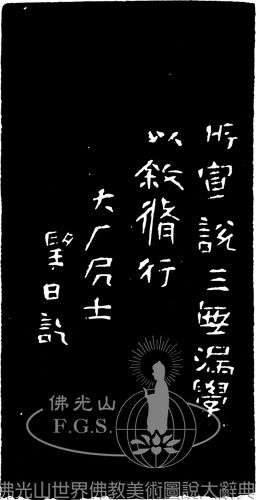 所宣說三無漏學
以敘脩行
大厂居士
朢日記
佛光山
F.G.S.
佛光山世界佛教美術圖說大辭典